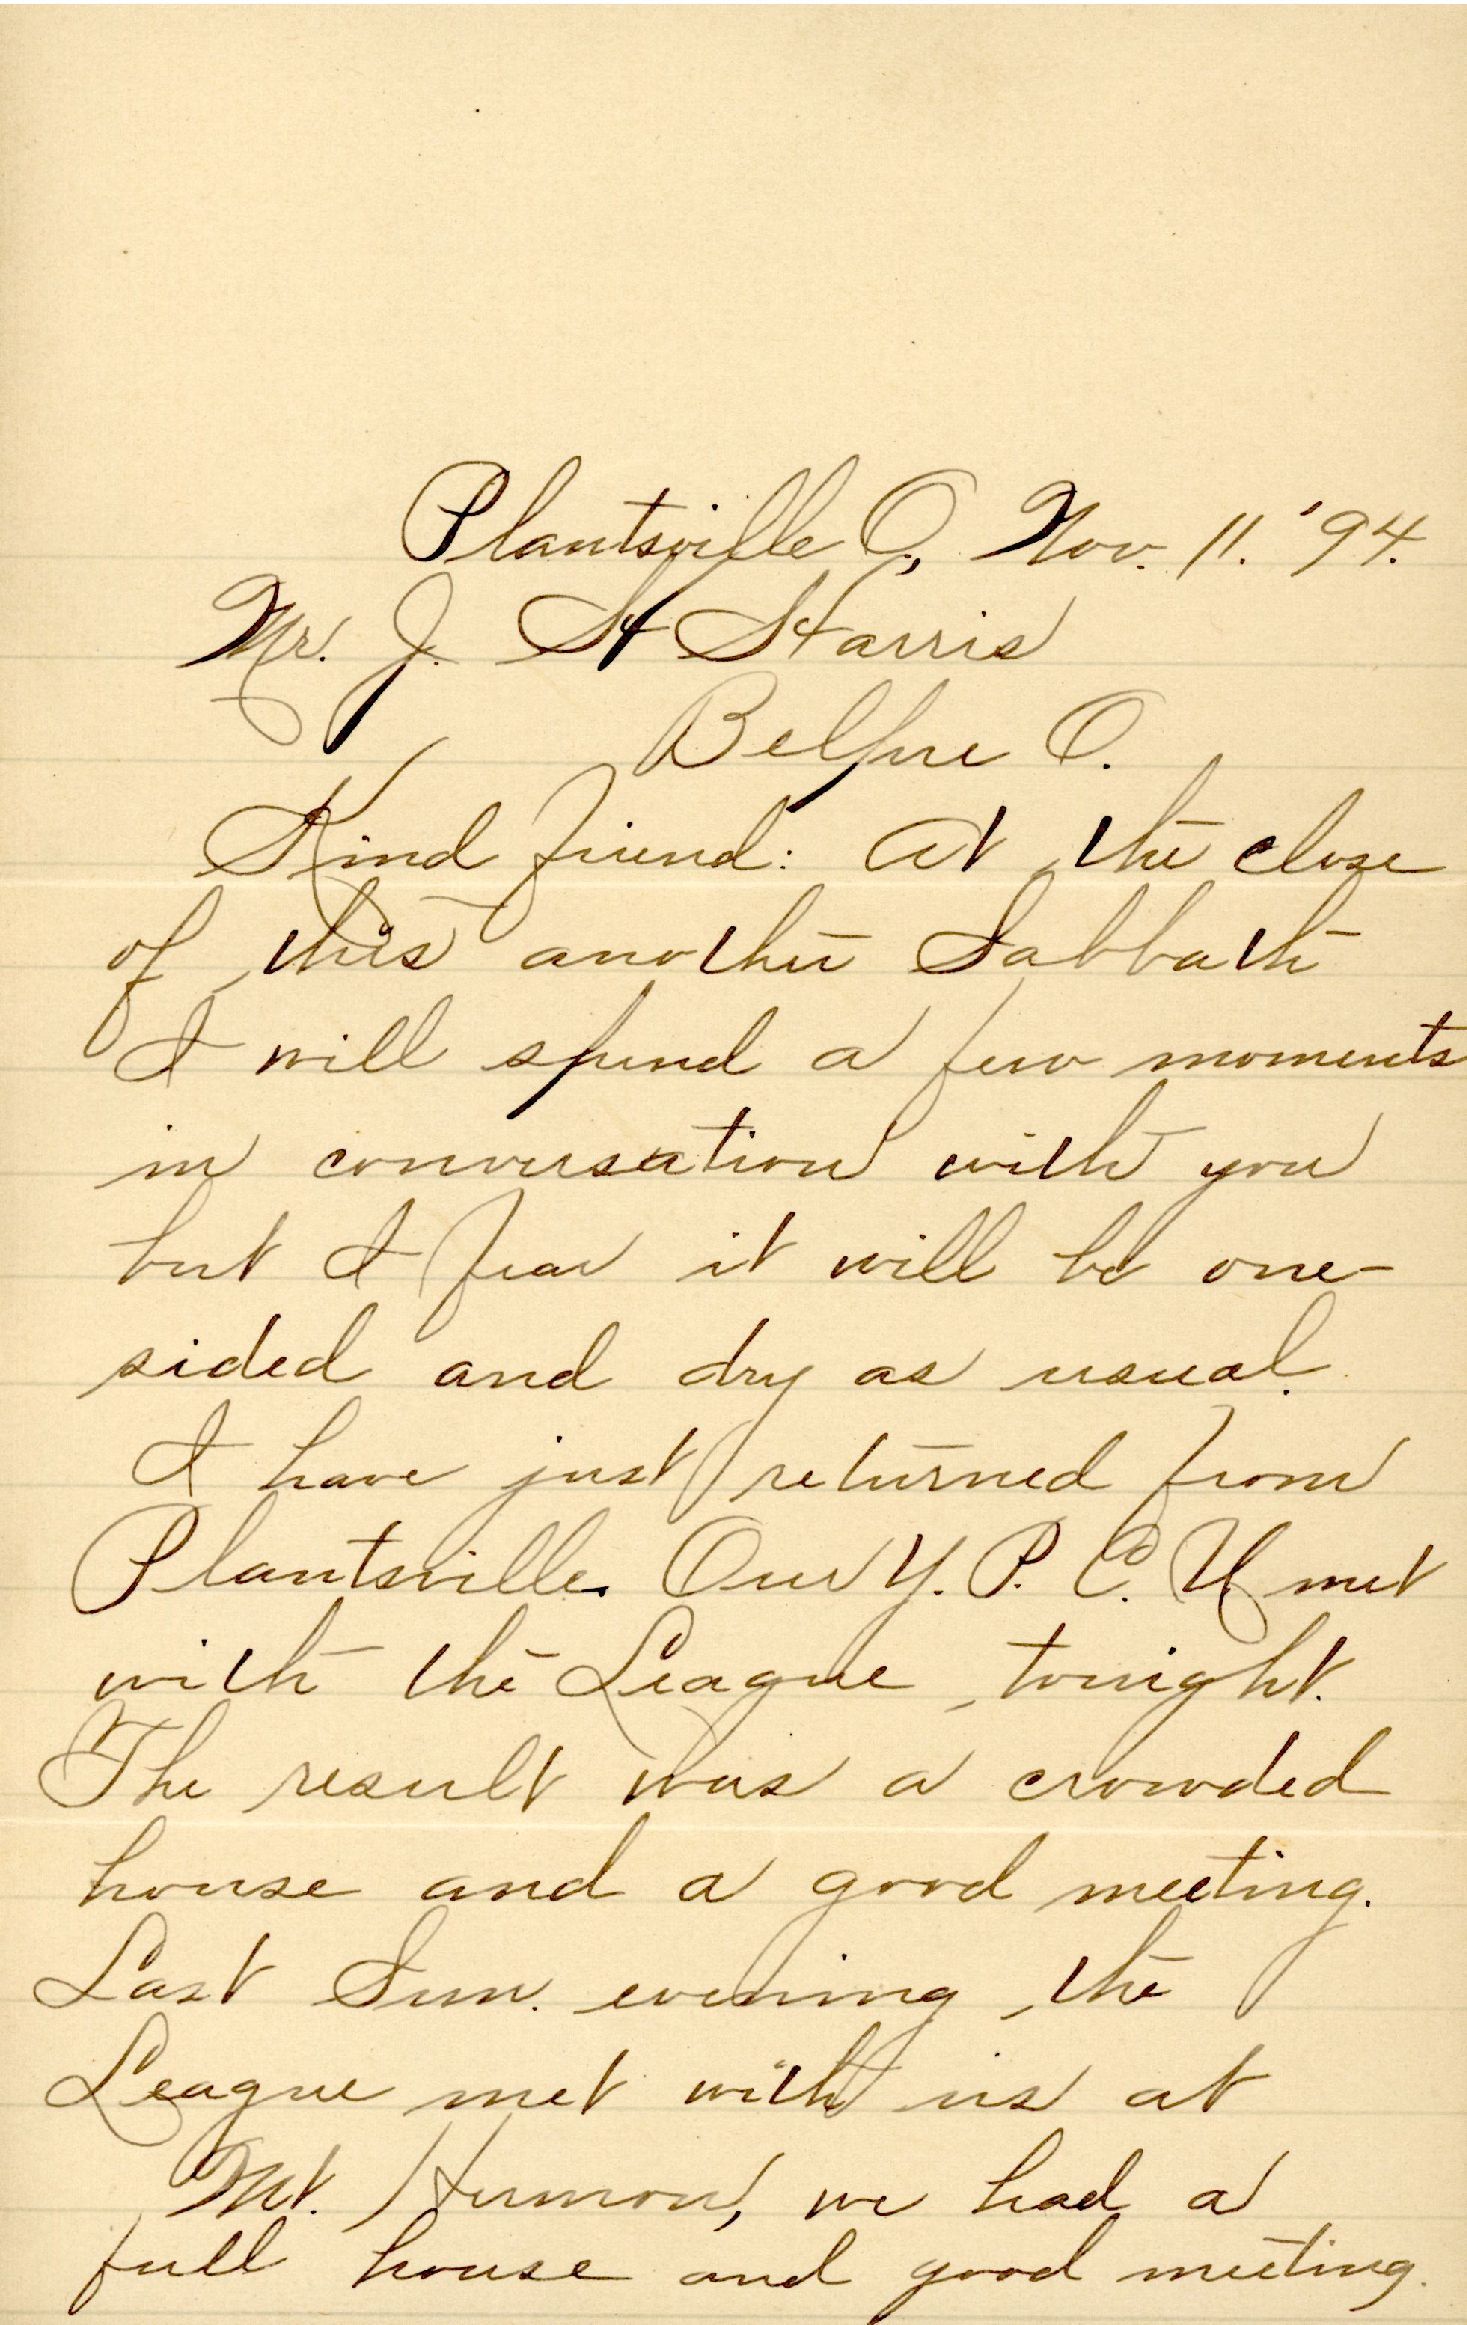 Plantsville O., Nov. 11. '94.
Mr. J. H Harris
Belpre O.
Kind friend: At the close
of this another Sabbath
I will spend a few moments
in conversation with you
but I fear it will be one-
sided and dry as usual.
I have just returned from
Plantsville. Our Y. P. C. U met
with the League tonight.
The result was a crowded
house and a good meeting.
Last Sun. evening the
League met with us at
Mt. Hermon, we had a
full house and good meeting.